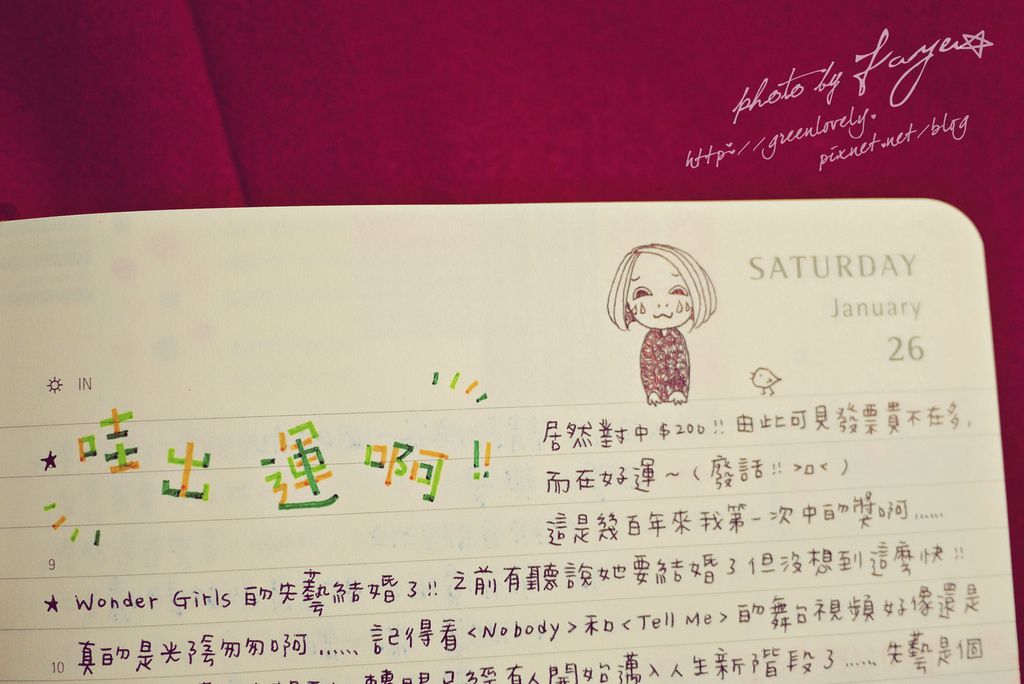 photo by Faye
http://greenlovely.
pixnet.net/blog
SATURDAY
January
26
IN
★ 哇出運啊!!
居然對中$200!! 由此可見發票貴不在多,
而在好運~(廢話!! >口<)
這是幾百年來我第一次中的獎啊……
9
★ Wonder Girls 的先藝結婚了!! 之前有聽說她要結婚了但沒想到這麼快!!
真的是光陰匆匆啊…… 記得看<Nobody>和<Tell Me>的舞台視頻好像還是
10
已經有人開始邁入人生新階段了…… 先藝是個